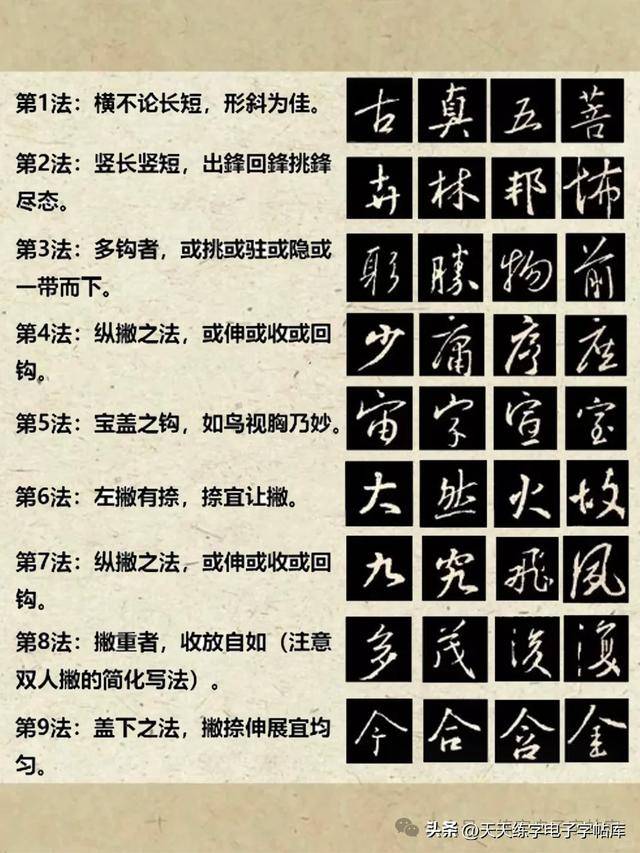 第1法：横不论长短，形斜为佳。 古 真 五 菩
第2法：竖长竖短，出鋒回鋒挑鋒
尽态。 卉 林 邦 怖
第3法：多钩者，或挑或驻或隐或
一带而下。 形 勝 物 前
第4法：纵撇之法，或伸或收或回
钩。 少 庸 序 座
第5法：宝盖之钩，如鸟视胸乃妙。 宙 字 宣 室
第6法：左撇有捺，捺宜让撇。 大 然 火 故
第7法：纵撇之法，或伸或收或回
钩。 九 究 飛 風
第8法：撇重者，收放自如（注意
双人撇的简化写法）。 多 茂 後 復
第9法：盖下之法，撇捺伸展宜均
匀。 今 合 含 金
头条 @天天练字电子字帖库